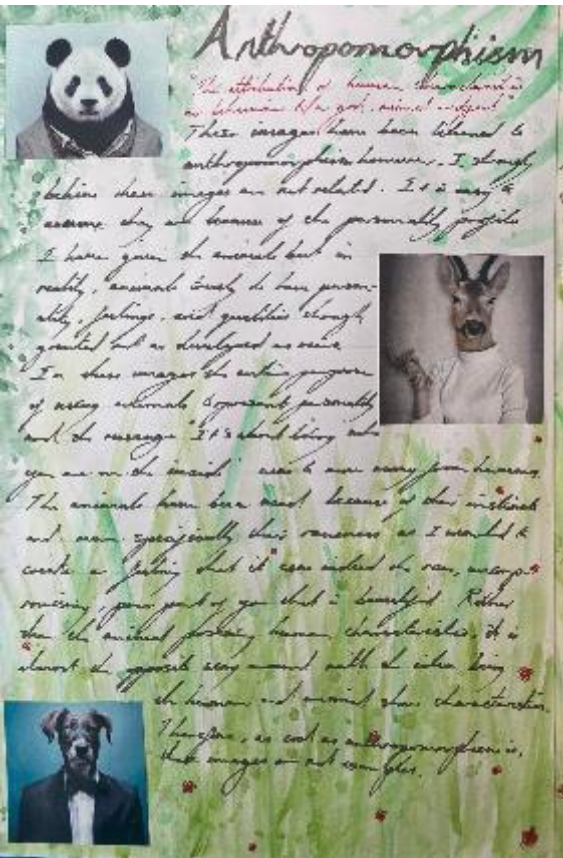 Anthropomorphism
"The attribution of human characteristics
or behaviour to a god, animal or object"
These images have been likened to
anthropomorphism however, I strongly
believe these images are not related. It is easy to
assume they are because of the personality profile
I have given the animals but in
reality, animals truly do have person-
ality, feelings, and qualities though
granted not as developed as ours.
In these images the entire purpose
of using animals to present personality
and the message "It's about being who
you are on the inside" was to move away from humans.
The animals have been used because of their instincts
and more specifically their rawness as I wanted to
create a feeling that it was indeed the raw, uncomp-
romising, pure part of you that is beautiful. Rather
than the animal possessing human characteristics, it is
almost the opposite way around with the idea being
the human and animal share characteristics.
Therefore, as cool as anthropomorphism is,
these images are not examples.